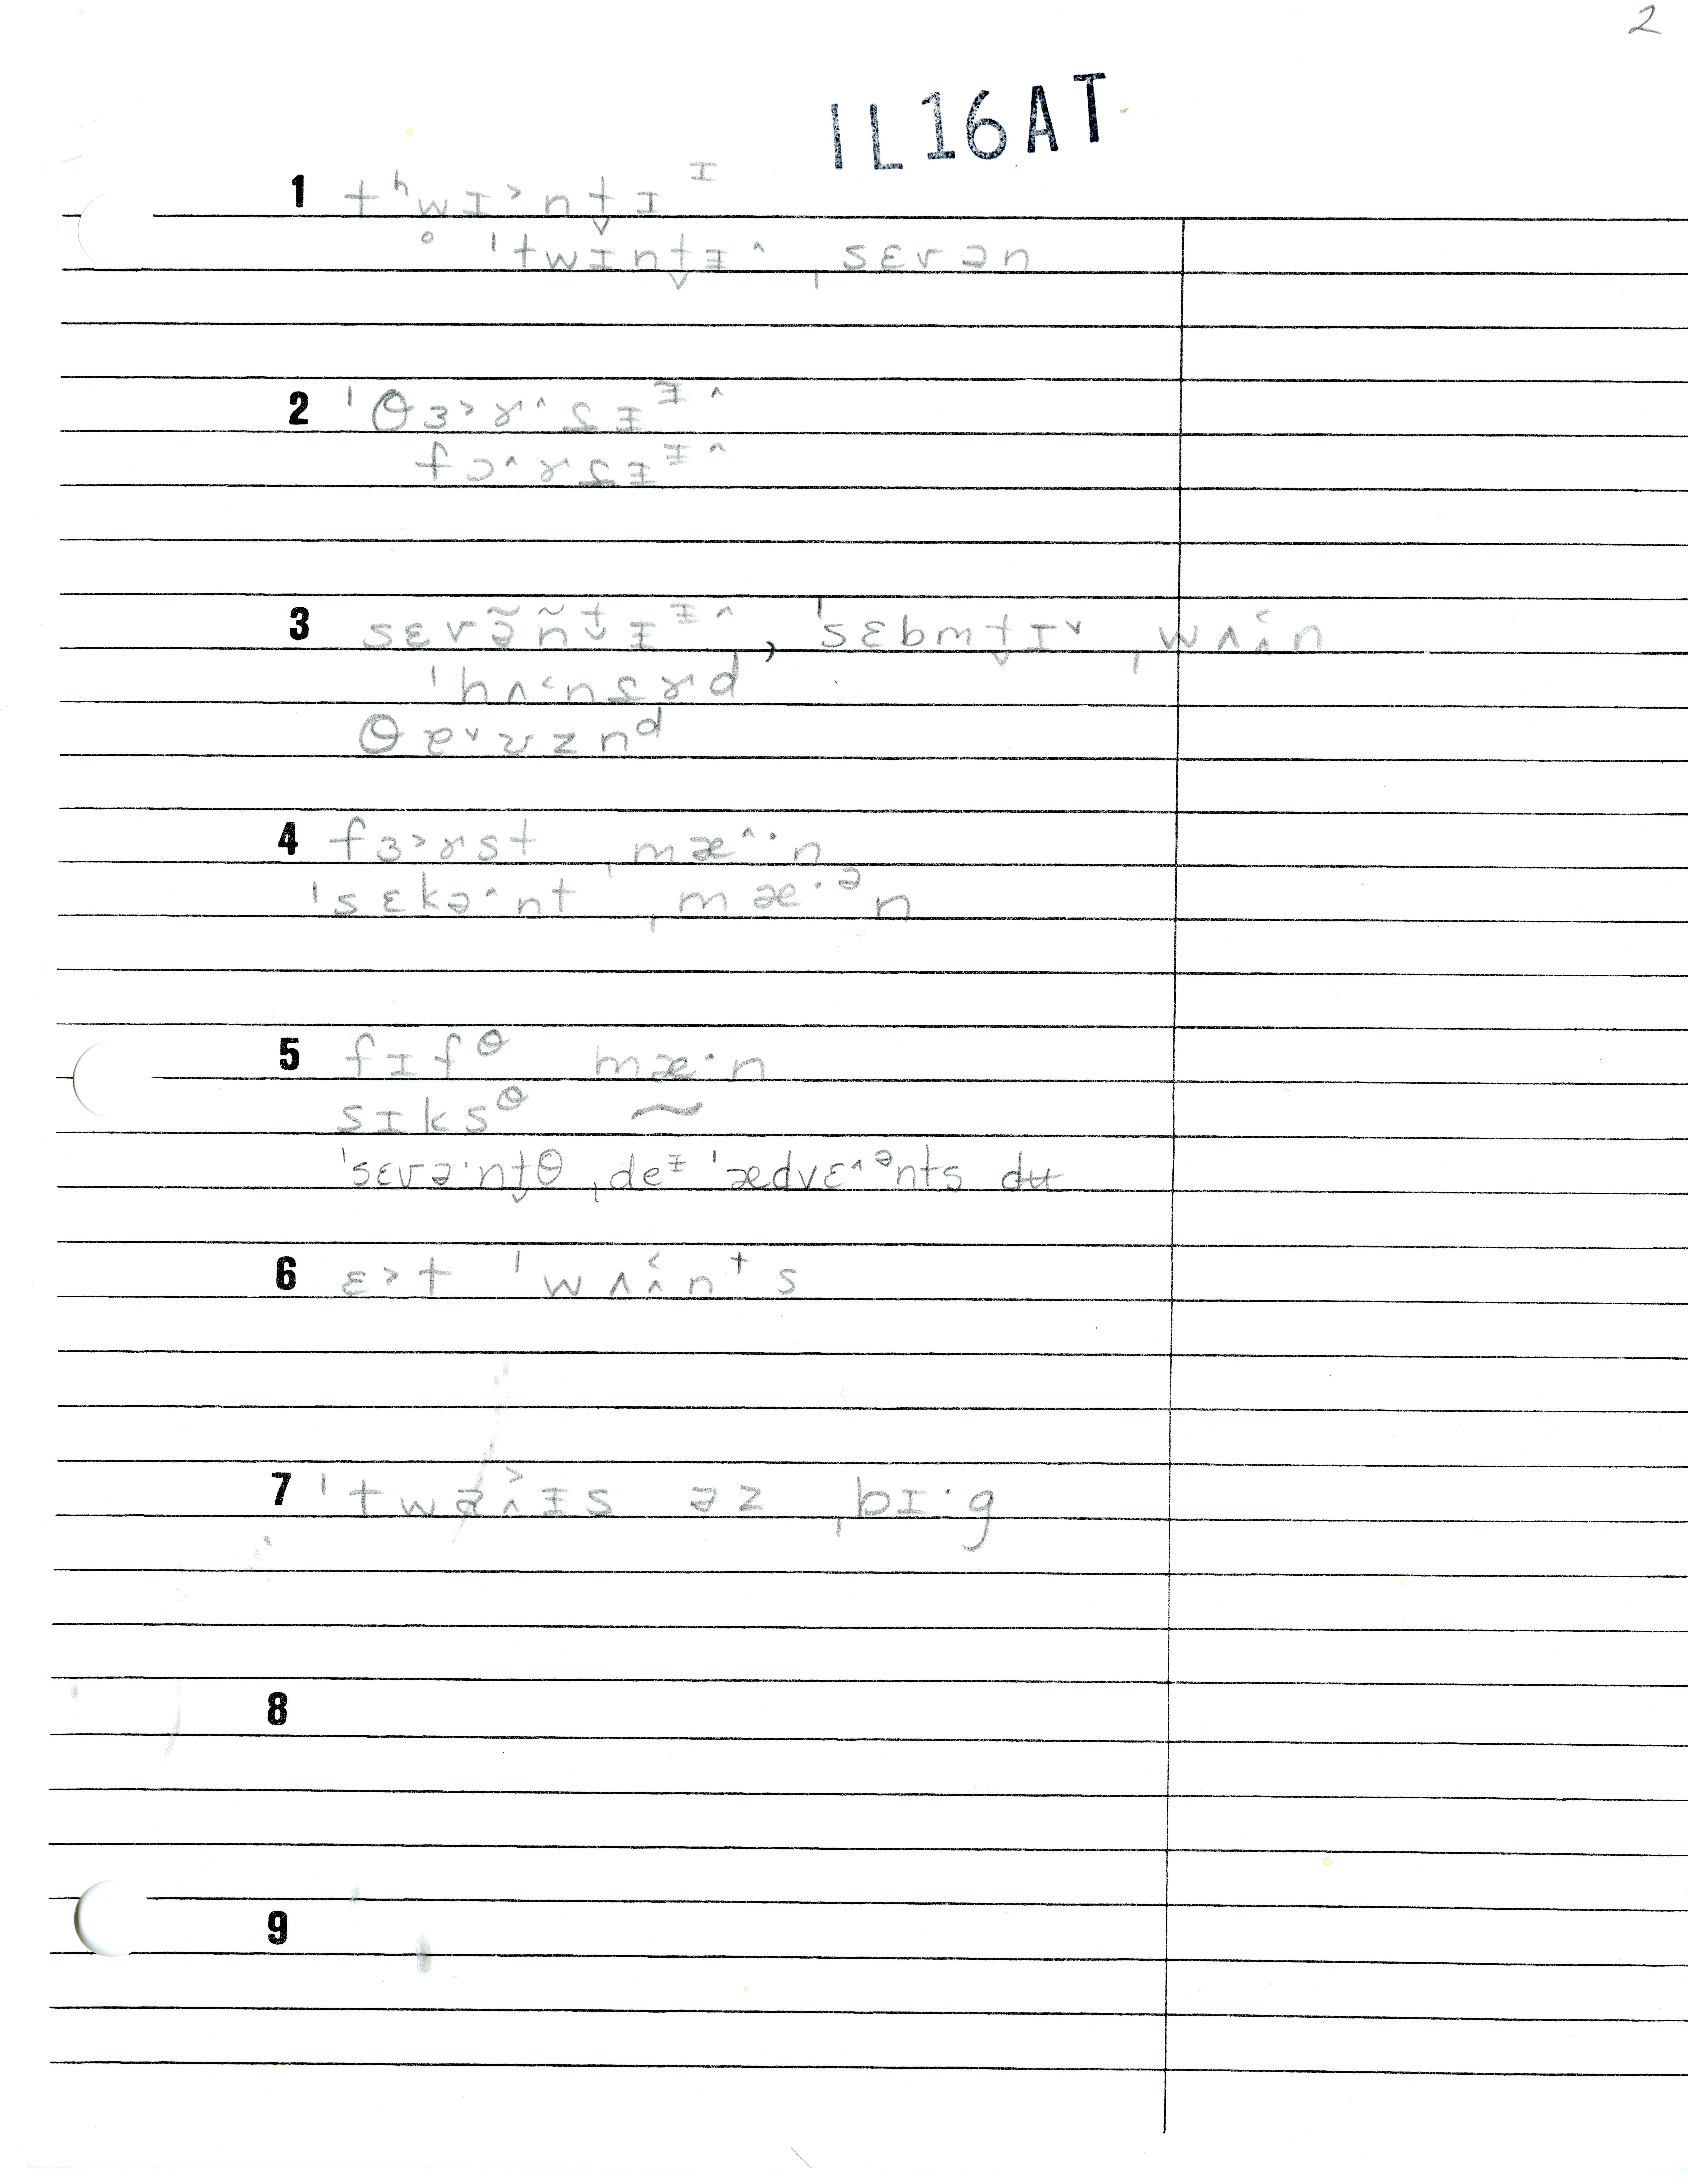 2
IL16AT
1 tʰwɪ˃nt̬ɪᶦ
ˈtwɪnt̬ɪ˄ ˌsɛvən
2 ˈθɜ˃ɤ˄ʢ̲ᵻᶧ˄
fɔ˄ɤʢ̲ᵻᶧ˄
3 sɛvə̃ñt̬ᵻᶧ˄, ˈsɛbmt̬ɪ˅ ˌwʌɨ̂n
ˈhʌ˂nʢ̲ɤd
θɐ˅ʊznᵈ
4 fɜ˃ɤst ˌmæ˄·n
ˈsɛkə˄nt ˌmæ·ᵊn
5 fɪfᶿ mæ·n
sɪksᶿ ~
ˈsɛvə·nt̬θ ˌdeᶧ ˈædvɛ˄ᵊnts
6 ɛ˃t ˈwʌɨ̂nᵗs
7 ˈtwɑ̂ᵻs əz ˌbɪ·g
8
9